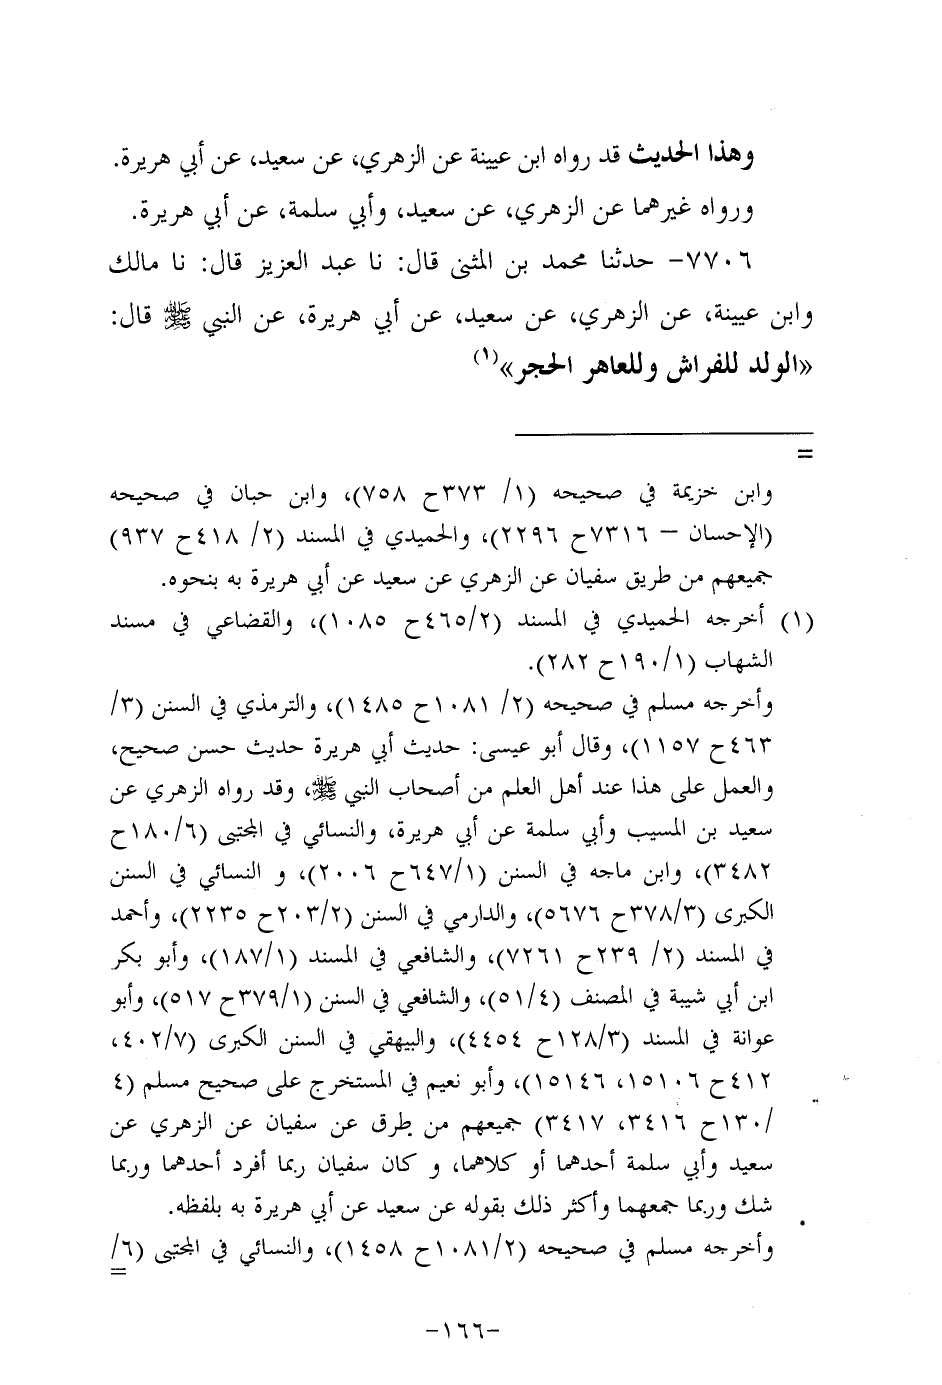 وهذا الحديث قد رواه ابن عيينة عن الزهري، عن سعيد، عن أبي هريرة.
ورواه غيرهما عن الزهري، عن سعيد، وأبي سلمة، عن أبي هريرة.
٧٧٠٦- حدثنا محمد بن المثنى قال: نا عبد العزيز قال: نا مالك
وابن عيينة، عن الزهري، عن سعيد، عن أبي هريرة، عن النبي ﷺ قال:
«الولد للفراش وللعاهر الحجر»(١)
=
وابن خزيمة في صحيحه (١/ ٣٧٣ح ٧٥٨)، وابن حبان في صحيحه
(الإحسان – ٧٣١٦ح ٢٢٩٦)، والحميدي في المسند (٢/ ٤١٨ح ٩٣٧)
جميعهم من طريق سفيان عن الزهري عن سعيد عن أبي هريرة به بنحوه.
(١) أخرجه الحميدي في المسند (٤٦٥/٢ح ١٠٨٥)، والقضاعي في مسند
الشهاب (١٩٠/١ح ٢٨٢).
وأخرجه مسلم في صحيحه (٢/ ١٠٨١ح ١٤٨٥)، والترمذي في السنن (٣/
٤٦٣ح ١١٥٧)، وقال أبو عيسى: حديث أبي هريرة حديث حسن صحيح،
والعمل على هذا عند أهل العلم من أصحاب النبي ﷺ، وقد رواه الزهري عن
سعيد بن المسيب وأبي سلمة عن أبي هريرة، والنسائي في المجتبى (١٨٠/٦ح
٣٤٨٢)، وابن ماجه في السنن (٦٤٧/١ح ٢٠٠٦)، و النسائي في السنن
الكبرى (٣٧٨/٣ح ٥٦٧٦)، والدارمي في السنن (٢٠٣/٢ح ٢٢٣٥)، وأحمد
في المسند (٢/ ٢٣٩ح ٧٢٦١)، والشافعي في المسند (١٨٧/١)، وأبو بكر
ابن أبي شيبة في المصنف (٥١/٤)، والشافعي في السنن (٣٧٩/١ح ٥١٧)، وأبو
عوانة في المسند (١٢٨/٣ح ٤٤٥٤)، والبيهقي في السنن الكبرى (٤٠٢/٧،
٤١٢ح ١٥١٠٦، ١٥١٤٦)، وأبو نعيم في المستخرج على صحيح مسلم (٤
/١٣٠ح ٣٤١٦، ٣٤١٧) جميعهم من طرق عن سفيان عن الزهري عن
سعيد وأبي سلمة أحدهما أو كلاهما، و كان سفيان ربما أفرد أحدهما وربما
شك وربما جمعهما وأكثر ذلك بقوله عن سعيد عن أبي هريرة به بلفظه.
وأخرجه مسلم في صحيحه (١٠٨١/٢ح ١٤٥٨)، والنسائي في المجتبى (٦/
=
-١٦٦-